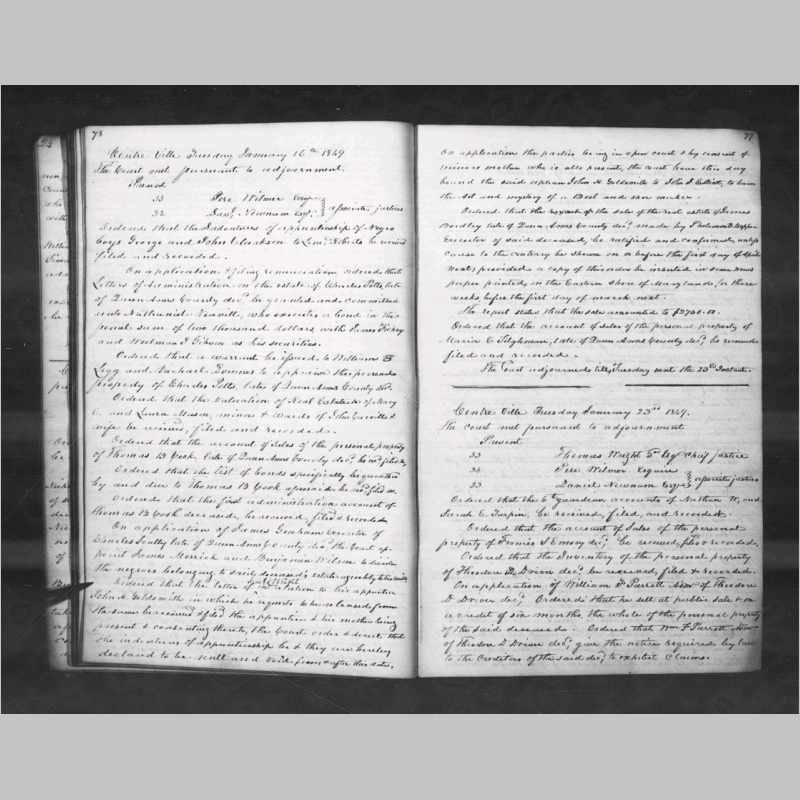 78
Centre Ville Tuesday January 16th 1849
The Court met pursuant to adjournment.
Present
33 Pere Wilmer Esqr
32 Danl Newnam Esqr } associate justices
Ordered that the Indentures of apprenticeship of Negro
boys George and John Clarkson to Roberts be recvd
filed and recorded.
On application & filing renunciation ordered that
Letters of Administration on the estate of Charles Potts, late
of Queen Anns County decd be granted and committed
unto Nathaniel Leavitt, who executes a bond in the
penal sum of two thousand dollars, with James
and as his securities.
Ordered that a warrant be issued to William B
Legg and Downes to appraise the personal
property of Charles Potts, late of Queen Anns County decd
Ordered that the valuation of Real Estate &c of Mary
C. and Laura Mason, minors & wards of John &
wife be recvd, filed and recorded.
Ordered that the account of sales of the personal property
of Thomas B Cook, late of Queen Anns County decd be recd filed &c
Ordered that the list of bonds specifically bequeathed
by and due to Thomas B Cook aforesaid be recd filed &c
Ordered that the first administration account of
Thomas B Cook deceased, be received, filed & recorded
On application of James Executor of
Charles late of Queen Anns County decd the Court ap-
point James Merrick and Benjamin Wilson to divide
the negroes belonging to said deceased's estate agreeably to his will
Ordered that the letter of in relation to his apprentice
John H Goldsmith in which he requests to be released from
the same be received & filed the apprentice & his mother being
present & consenting thereto, the Court order & direct that
the indentures of apprenticeship be & they are hereby
declared to be null and void from & after this date.
77
On application the parties being in open court & by consent of
minors mother who is also present, the court have this day
bound the said orphan John H Goldsmith to John J Elliott, to learn
the Art and mystery of a Boot and shoe maker.
Ordered that the report of the sale of the real estate of James
Bordley late of Queen Anns County decd made by
Executor of said deceased, be ratified and confirmed, unless
cause to the contrary be shewn on or before the first day of April
next; provided a copy of this order be inserted in some news
paper printed on the Eastern Shore of Maryland, for three
weeks before the first day of march next.
The report states that the sales amounted to
Ordered that the account of sales of the personal property of
Maria C Tilghman, late of Queen Anns County decd be received
filed and recorded.
The Court adjourned till Tuesday next the 23d Instant.
Centre Ville Tuesday January 23rd 1849.
The court met pursuant to adjournment
Present
33 Thomas Wright 3d Esqr chief justice
34 Pere Wilmer Esquire
33 Daniel Newnam Esqr } associate justices
Ordered that the 6th guardian accounts of Nathan W, and
Sarah E Turpin, be received, filed, and recorded.
Ordered that the account of sales of the personal
property of Emory decd be received, filed & recorded.
Ordered that the Inventory of the personal property
of Theodore D. decd be received, filed & recorded.
On application of William F Parrott of Theodore
D. decd Ordered that he sell at public sale & on
a credit of six months, the whole of the personal property
of the said deceased. Ordered that Wm F Parrott
of Theodore D. decd give the notice required by law
to the Creditors of the said decd to exhibit claims.